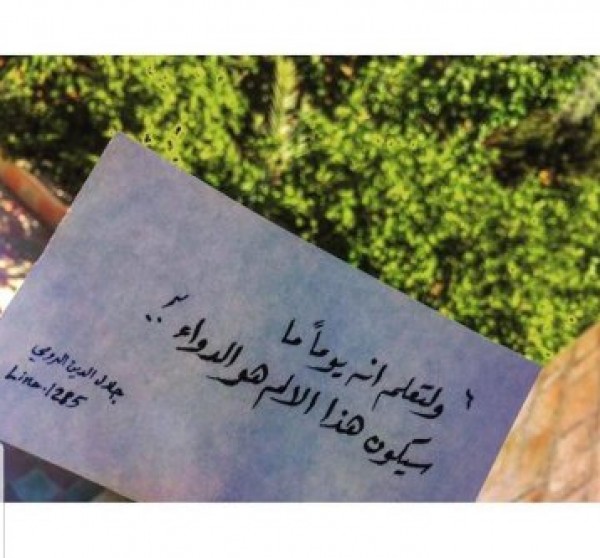 “ ولتعلم انه يوماً ما
سيكون هذا الالم هو الدواء .. ”
جلال الدين الرومي
Lina.1285